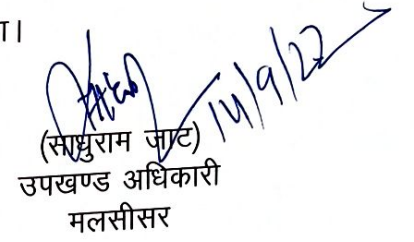 ा।
14/9/22
(साधुराम जाट)
उपखण्ड अधिकारी
मलसीसर